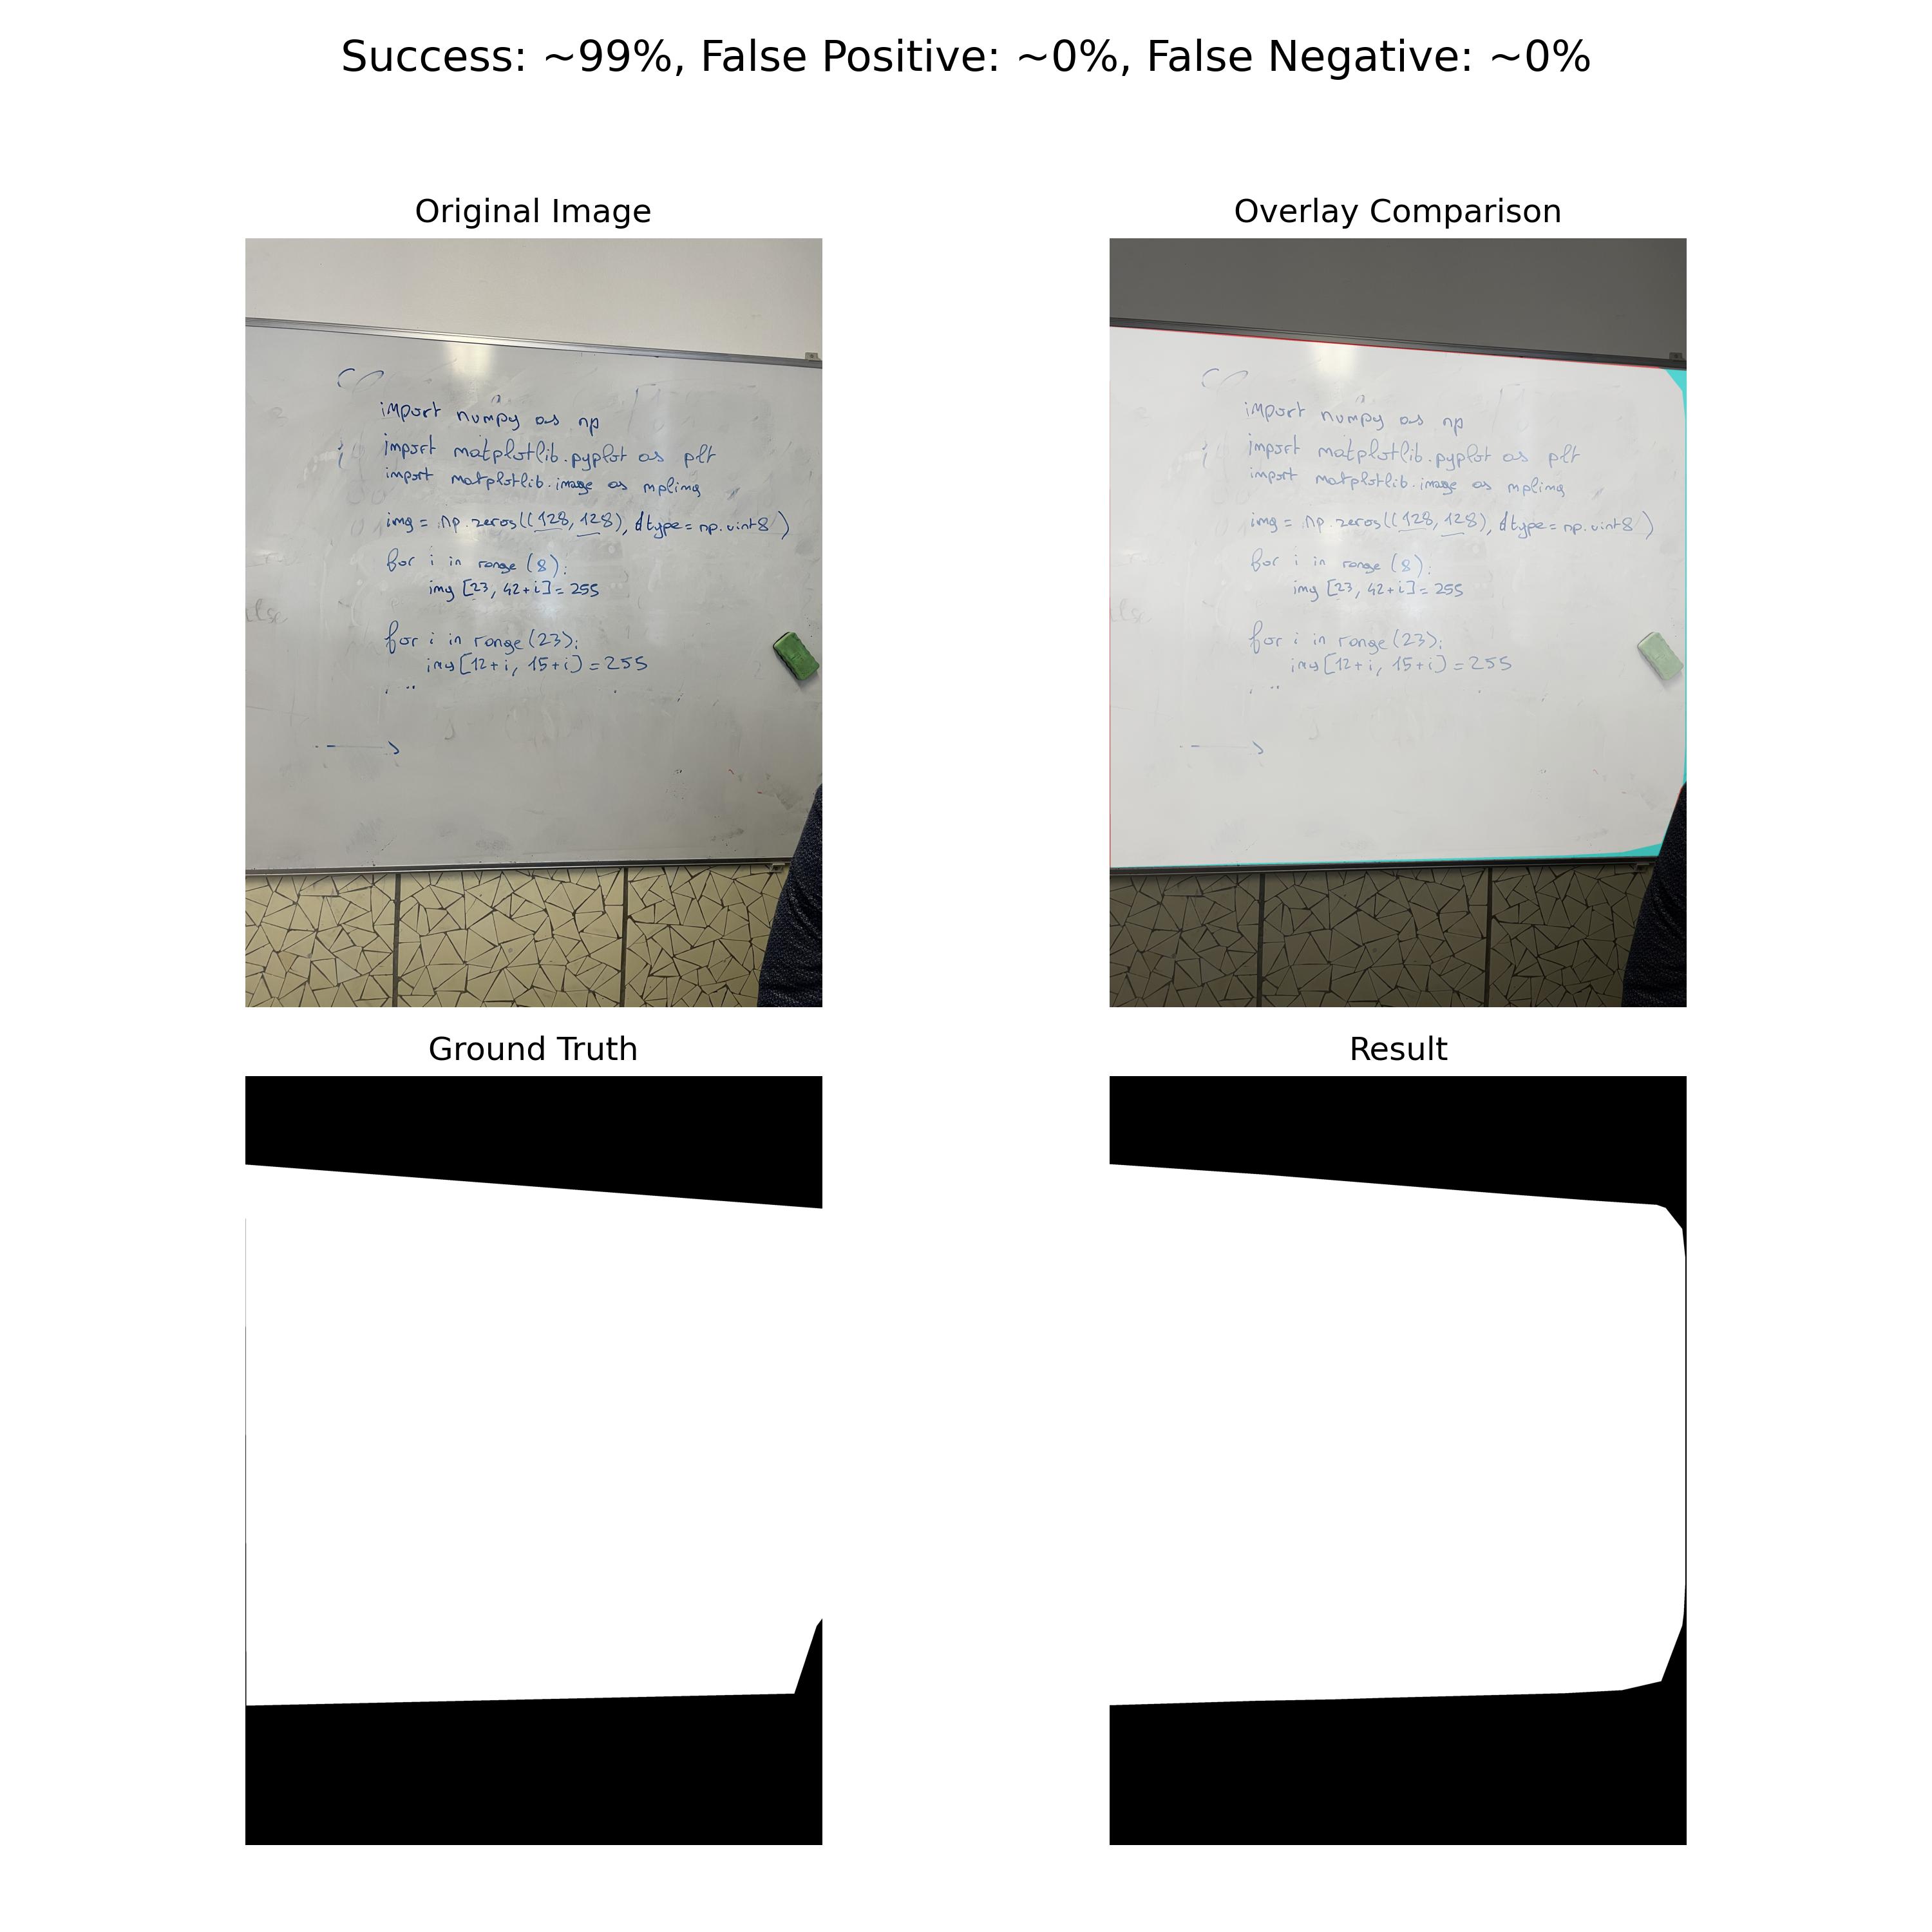 Success: ~99%, False Positive: ~0%, False Negative: ~0%
Original Image
import numpy as np
import matplotlib.pyplot as plt
import matplotlib.image as mpling
img = np.zeros((128, 128), dtype=np.uint8)
for i in range (8):
img [23, 42+i] = 255
for i in range (23):
img [12+i, 15+i] = 255
Overlay Comparison
import numpy as np
import matplotlib.pyplot as plt
import matplotlib.image as mpling
img = np.zeros((128, 128), dtype=np.uint8)
for i in range (8):
img [23, 42+i] = 255
for i in range (23):
img [12+i, 15+i] = 255
Ground Truth
Result